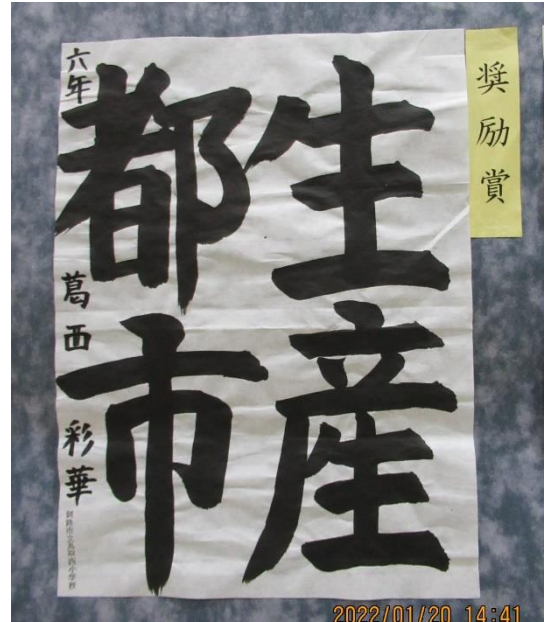 奨励賞
生産
都市
六年 葛西 彩華
釧路市立鳥取西小学校
2022/01/20 14:41